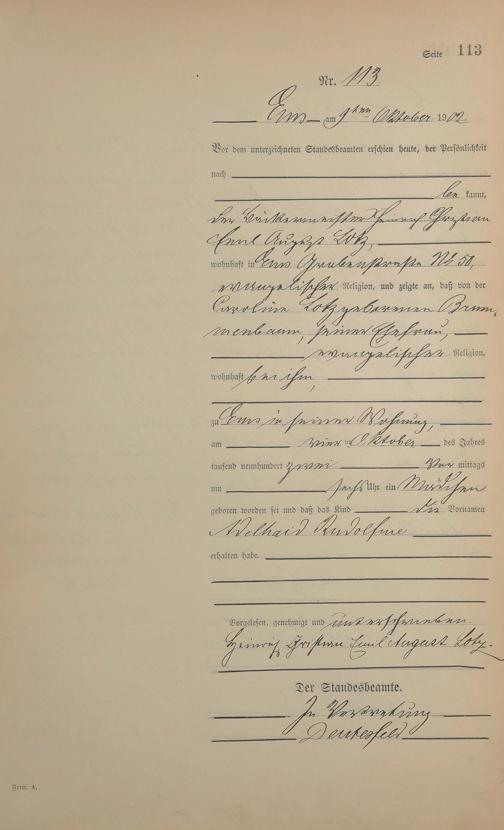 Seite 113
Nr. 113
Ems am 9ten Oktober 1902
Vor dem unterzeichneten Standesbeamten erschien heute, der Persönlichkeit
nach
be kannt,
der Bäckermeister Heinrich Christian
Emil August Lotz,
wohnhaft in Ems Grabenstraße No 50,
evangelischer Religion, und zeigte an, daß von der
Caroline Lotz geborenen
seiner Ehefrau,
evangelischer Religion,
wohnhaft bei ihm,
zu Ems in seiner Wohnung,
am vier Oktober des Jahres
tausend neunhundert zwei Vor mittags
um sechs Uhr ein Mädchen
geboren worden sei und daß das Kind die Vornamen
Adelhaid Rudolfine
erhalten habe.
Vorgelesen, genehmigt und unterschrieben.
Heinrich Christian Emil August Lotz.
Der Standesbeamte.
In Vertretung
Form. A.